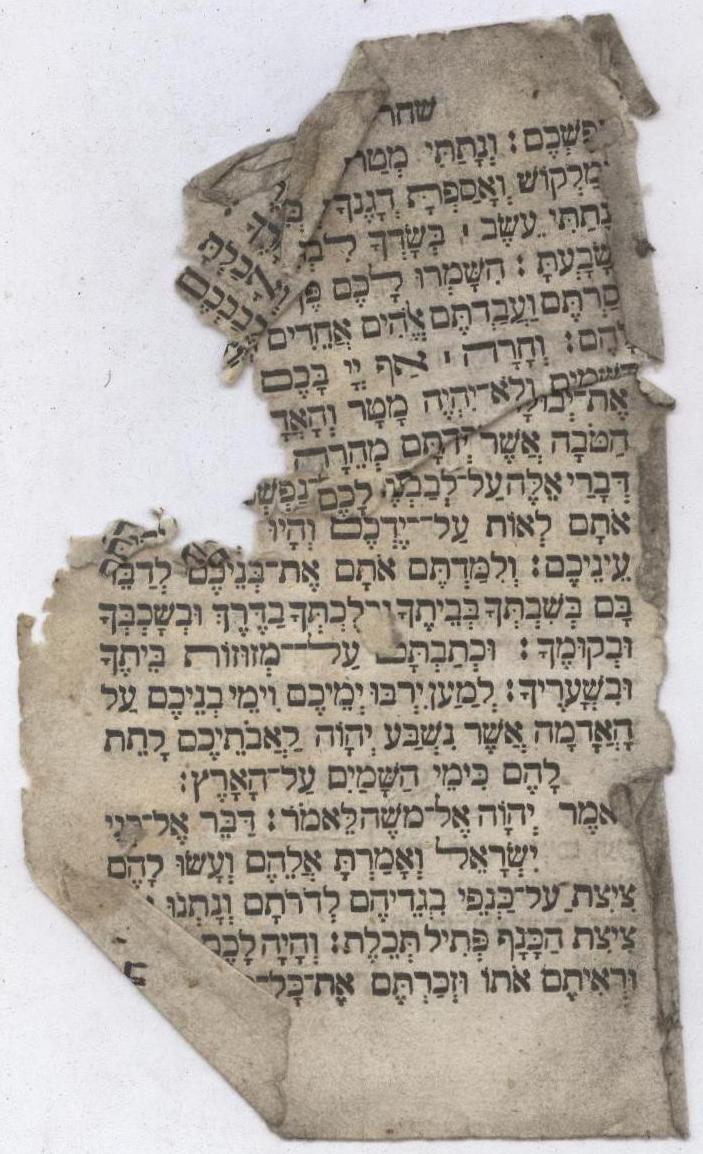 שחר
נַפְשְׁכֶם׃ וְנָתַתִּי מְטַר
וּמַלְקוֹשׁ וְאָסַפְתָּ דְגָנֶךָ
וְנָתַתִּי עֵשֶׂב ׀ בְּשָׂדְךָ וְאָכַלְתָּ
וְשָׂבָעְתָּ׃ הִשָּׁמְרוּ לָכֶם פֶּן לְבַבְכֶם
וְסַרְתֶּם וַעֲבַדְתֶּם אֱלֹהִים אֲחֵרִים
לָהֶם׃ וְחָרָה ׀ אַף יְיָ בָּכֶם
הַשָּׁמַיִם וְלֹא־יִהְיֶה מָטָר
אֶת־יְבוּלָהּ
הַטֹּבָה אֲשֶׁר מְהֵרָה
דְּבָרַי אֵלֶּה עַל־לְבַבְכֶם
אֹתָם לְאוֹת עַל־־יֶדְכֶם וְהָיוּ
עֵינֵיכֶם׃ וְלִמַּדְתֶּם אֹתָם אֶת־בְּנֵיכֶם לְדַבֵּר
בָּם בְּשִׁבְתְּךָ בְּבֵיתֶךָ וּבְלֶכְתְּךָ בַדֶּרֶךְ וּבְשָׁכְבְּךָ
וּבְקוּמֶךָ׃ וּכְתַבְתָּם עַל־־מְזוּזוֹת בֵּיתֶךָ
וּבִשְׁעָרֶיךָ׃ לְמַעַן יִרְבּוּ יְמֵיכֶם וִימֵי בְנֵיכֶם עַל
הָאֲדָמָה אֲשֶׁר נִשְׁבַּע יְהֹוָה לַאֲבֹתֵיכֶם לָתֵת
לָהֶם כִּימֵי הַשָּׁמַיִם עַל־הָאָרֶץ׃
וַיֹּאמֶר יְהֹוָה אֶל־מֹשֶׁה לֵּאמֹר׃ דַּבֵּר אֶל־בְּנֵי
יִשְׂרָאֵל וְאָמַרְתָּ אֲלֵהֶם וְעָשׂוּ לָהֶם
צִיצִת עַל־כַּנְפֵי בִגְדֵיהֶם לְדֹרֹתָם וְנָתְנוּ
צִיצִת הַכָּנָף פְּתִיל תְּכֵלֶת׃ וְהָיָה לָכֶם
וּרְאִיתֶם אֹתוֹ וּזְכַרְתֶּם אֶת־כָּל־